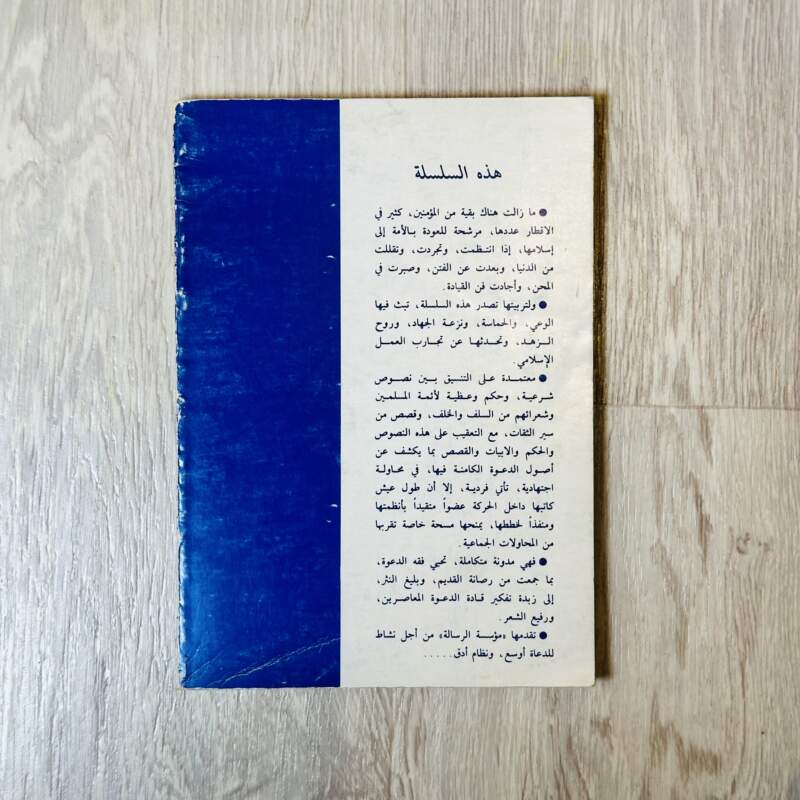 هذه السلسلة
● ما زالت هناك بقية من المؤمنين، كثير في
الاقطار عددها، مرشحة للعودة بالأمة إلى
إسلامها، إذا انتظمت، وتجردت، وتقللت
من الدنيا، وبعدت عن الفتن، وصبرت في
المحن، وأجادت فن القيادة.
● ولتربيتها تصدر هذه السلسلة، تبث فيها
الوعي، والحماسة، ونزعة الجهاد، وروح
الزهد، وتحدثها عن تجارب العمل
الإسلامي.
● معتمدة على التنسيق بين نصوص
شرعية، وحكم وعظية لأئمة المسلمين
وشعرائهم من السلف والخلف، وقصص من
سير الثقات، مع التعقيب على هذه النصوص
والحكم والابيات والقصص بما يكشف عن
أصول الدعوة الكامنة فيها، في محاولة
اجتهادية، تأتي فردية، إلا أن طول عيش
كاتبها داخل الحركة عضواً متقيداً بأنظمتها
ومنفذاً لخططها، يمنحها مسحة خاصة تقربها
من المحاولات الجماعية.
● فهي مدونة متكاملة، تحيي فقه الدعوة،
بما جمعت من رصانة القديم، وبليغ النثر،
إلى زبدة تفكير قادة الدعوة المعاصرين،
ورفيع الشعر.
● تقدمها «مؤسسة الرسالة» من أجل نشاط
للدعاة أوسع، ونظام أدق.....